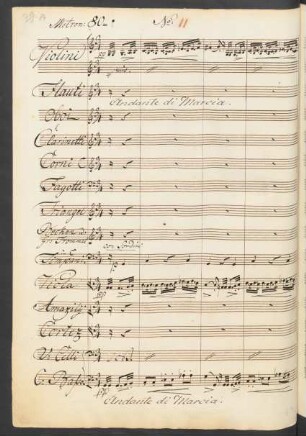 Metron: 80
No. 11
Violini
Flauti
Andante di Marcia.
Oboi
Clarinetti
Corni C
Fagotti
Triangel
con Sordini
Timpani
Viola
Amazily
Cortez
V. Celli
C. Bassi
Andante di Marcia.